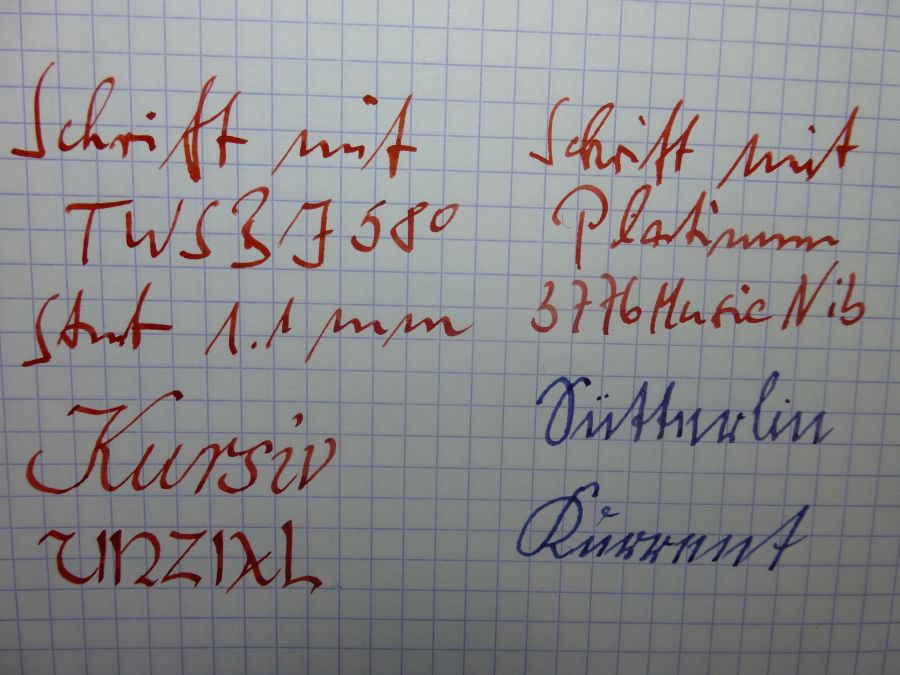 Schrift mit
TWSBI 580
Stub 1.1 mm
Kursiv
UNZIAL
Schrift mit
Platinum
3776 Music Nib
Sütterlin
Kurrent